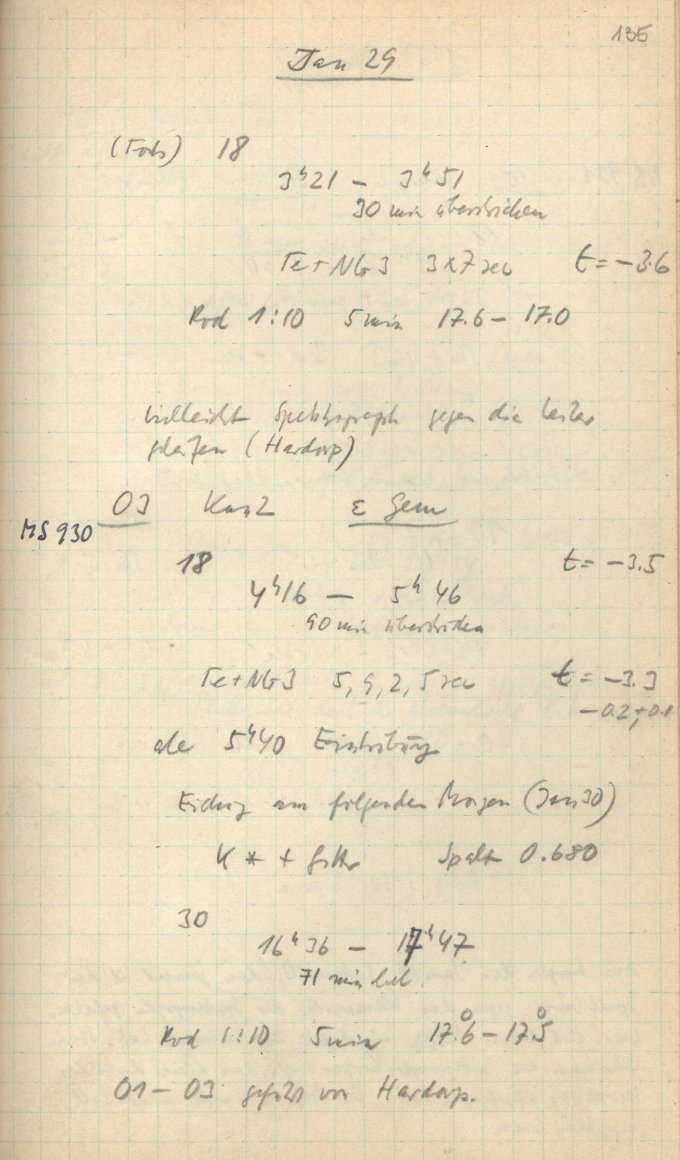 135
Jan 29
(Forts) 18
3ʰ21 – 3ʰ51
30 min überstrichen
Fe+NG3 3x7 sec t = -3.6
Rod 1:10 5 min 17.6 – 17.0
vielleicht Spektrograph gegen die Leiter
(Hardorp)
MS 930
03 ε Gem
18 t = -3.5
4ʰ16 – 5ʰ46
90 min überstrichen
Fe+NG3 5, 9, 2, 5 sec t = -3.3
-0.2, +0.1
5ʰ40
Eichung am folgenden Morgen (Jan 30)
K * + Gitter Spalt 0.680
30
16ʰ36 – 17ʰ47
71 min bel.
Rod 1:10 5 min 17.°6 – 17.°5
01 – 03 geführt von Hardorp.